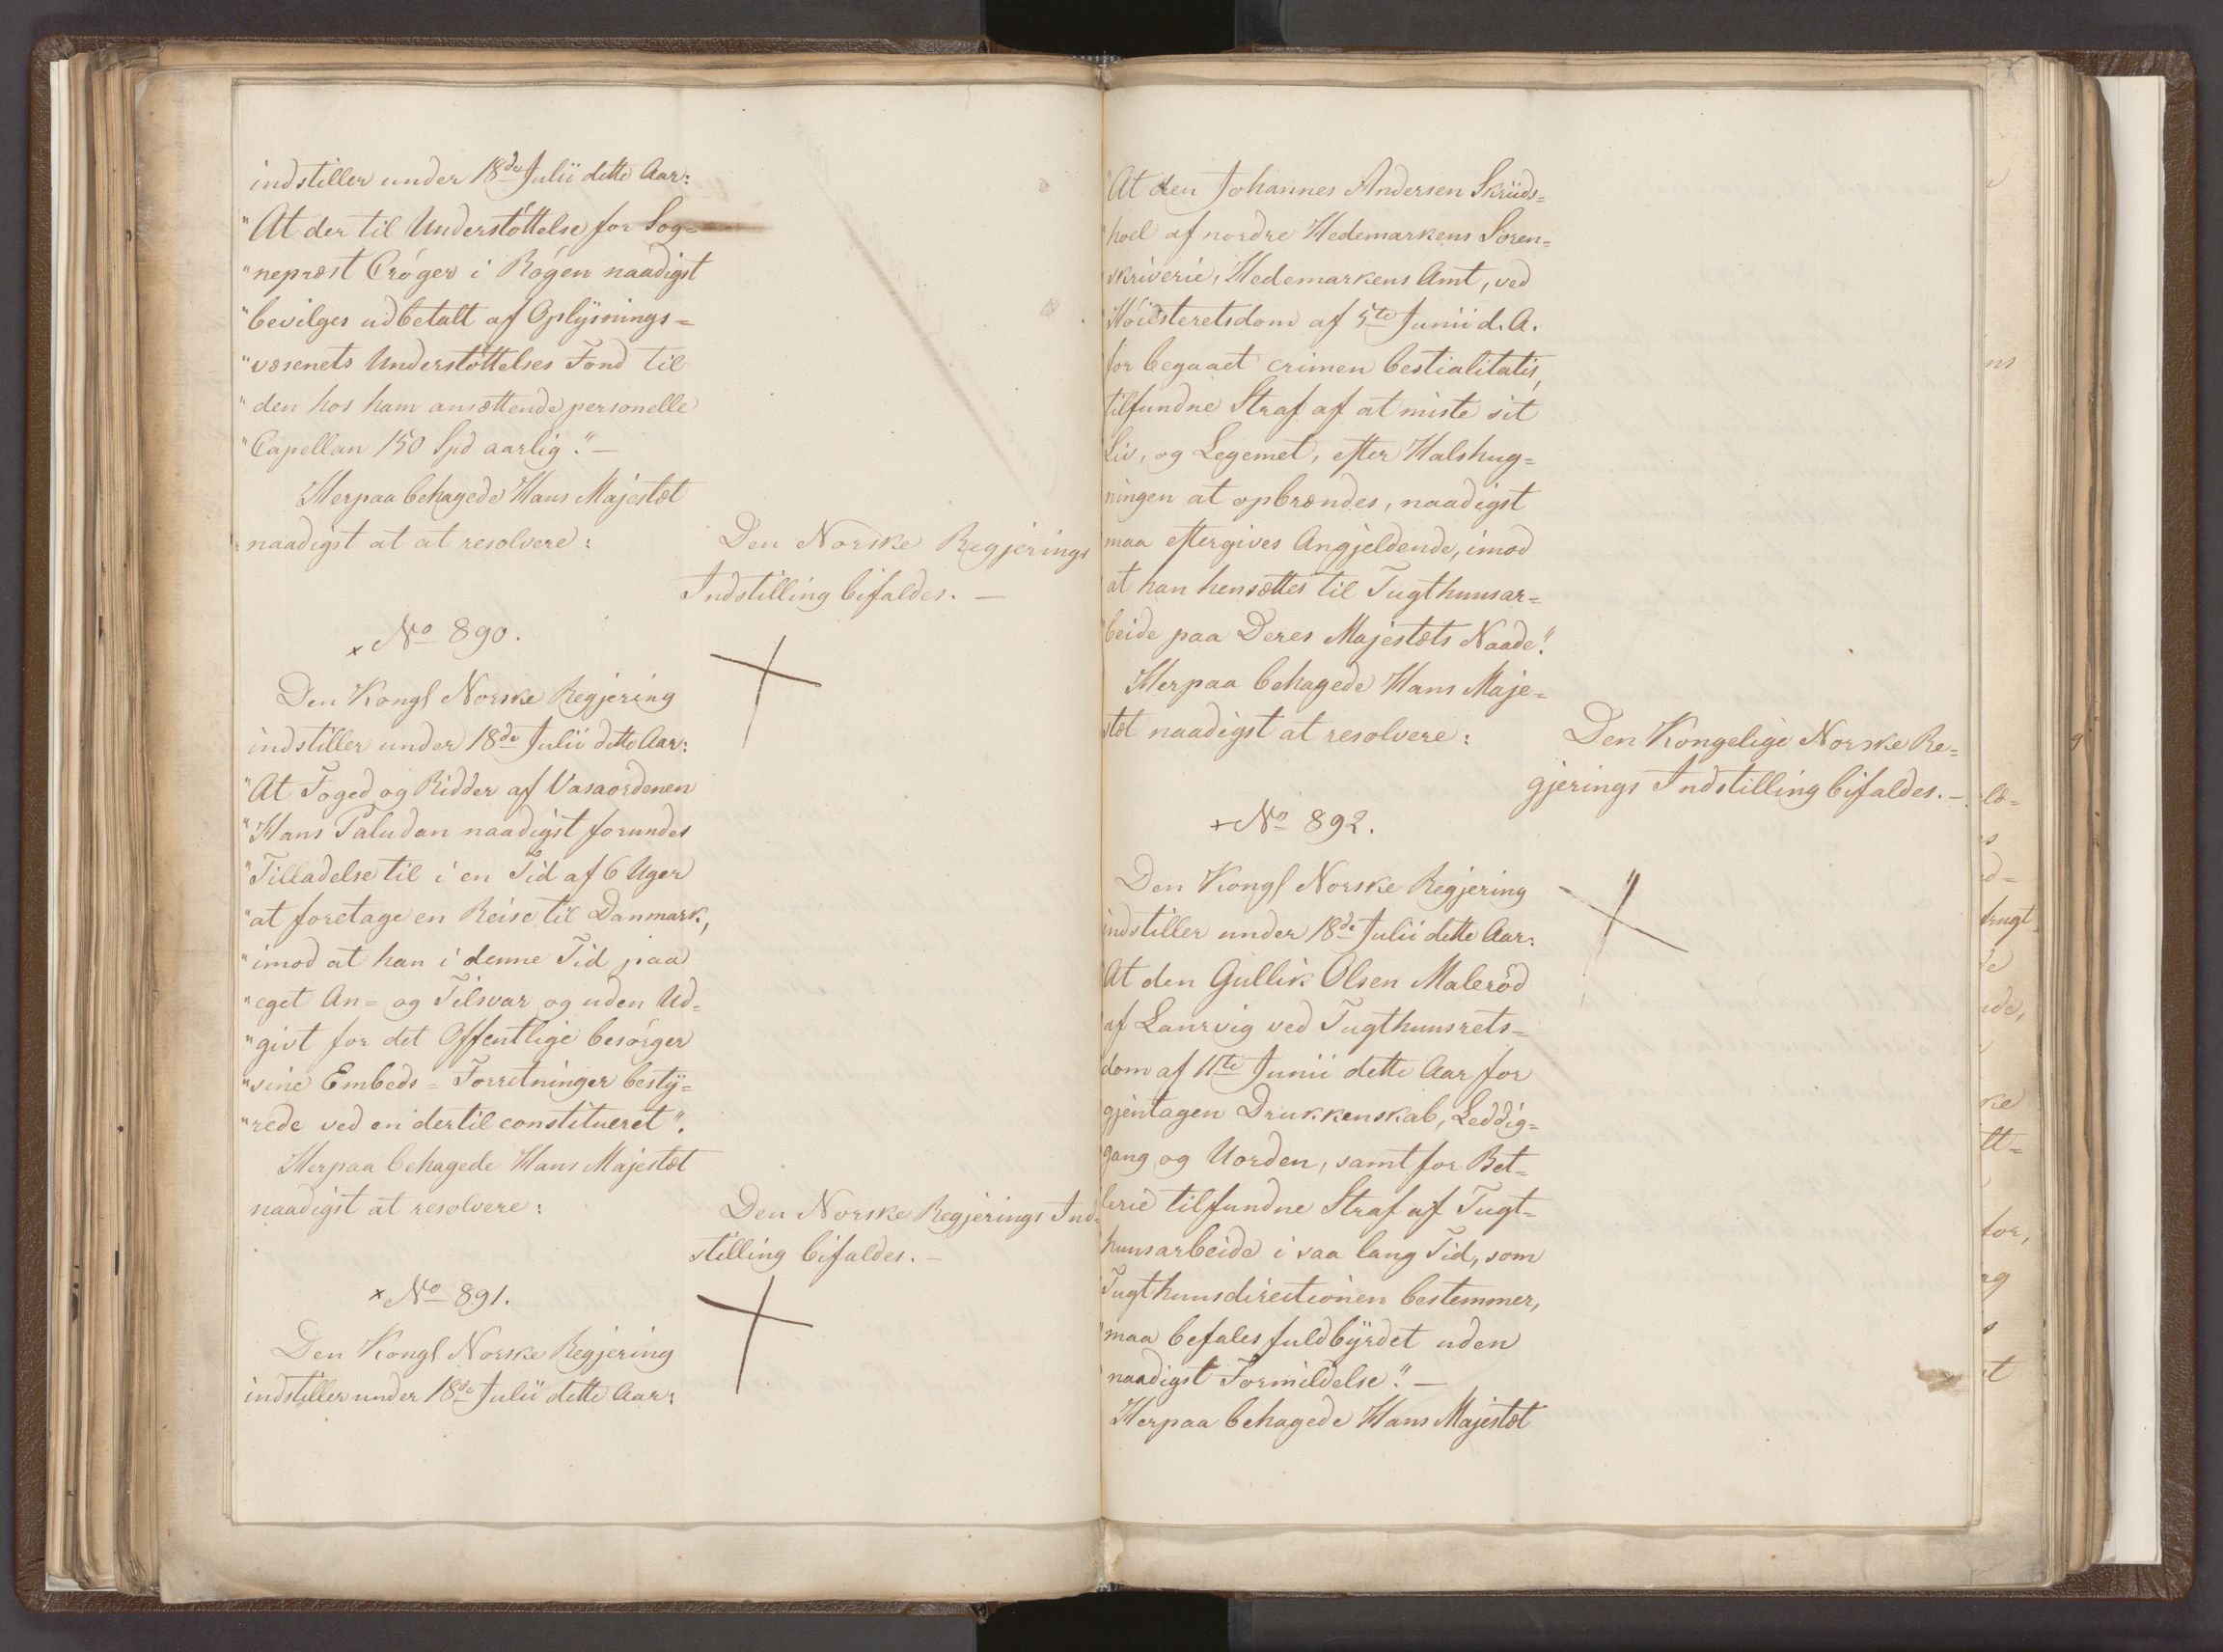 indstiller under 18de Julii dette Aar:
"At der til Understöttelse for Sog=
"nepræst Cröger i Rögen naadigst
"bevilges udbetalt af Oplysnings=
"væsenets Understöttelses Fond til
"den hos ham ansættende personelle
"Capellan 150 Spd aarlig." —
Herpaa behagede Hans Majestæt
naadigst at at resolvere:
Den Norske Regjerings
Indstilling bifaldes. —
× No 890.
Den Kongl Norske Regjering
indstiller under 18de Julii dette Aar:
"At Foged og Ridder af Vasaordenen
"Hans Paludan naadigst forundes
"Tilladelse til i en Tid af 6 Uger
"at foretage en Reise til Danmark,
"imod at han i denne Tid paa
"eget An= og Tilsvar og uden Ud=
"givt for det Offentlige besörger
"sine Embeds=Forretninger besty=
"rede ved en dertil constitueret".
Herpaa behagede Hans Majestæt
naadigst at resolvere:
Den Norske Regjerings Ind=
stilling bifaldes. —
× No 891.
Den Kongl Norske Regjering
indstiller under 18de Julii dette Aar:
"At den Johannes Andersen Skruds=
"hoel af nordre Hedemarkens Soren=
skriverie, Hedemarkens Amt, ved
Höiesteretsdom af 5te Junii d. A.
for begaaet crimen bestialitatis,
tilfundne Straf af at miste sit
Liv, og Legemet, efter Halshug=
ningen at opbrændes, naadigst
maa eftergives Angjeldende, imod
at han hensættes til Tugthuusar=
"beide paa Deres Majestæts Naade".
Herpaa behagede Hans Maje=
stæt naadigst at resolvere:
Den Kongelige Norske Re=
gjerings Indstilling bifaldes. —
× No 892.
Den Kongl Norske Regjering
indstiller under 18de Julii dette Aar:
At den Gullik Olsen Maleröd
af Laurvig ved Tugthuusrets=
dom af 11te Junii dette Aar for
gjentagen Drukkenskab, Leddig=
gang og Uorden, samt for Bet=
lerie tilfundne Straf af Tugt=
huusarbeide i saa lang Tid, som
Tugthuusdirectionen bestemmer,
"maa befales fuldbyrdet uden
"naadigst Formildelse." —
Herpaa behagede Hans Majestæt